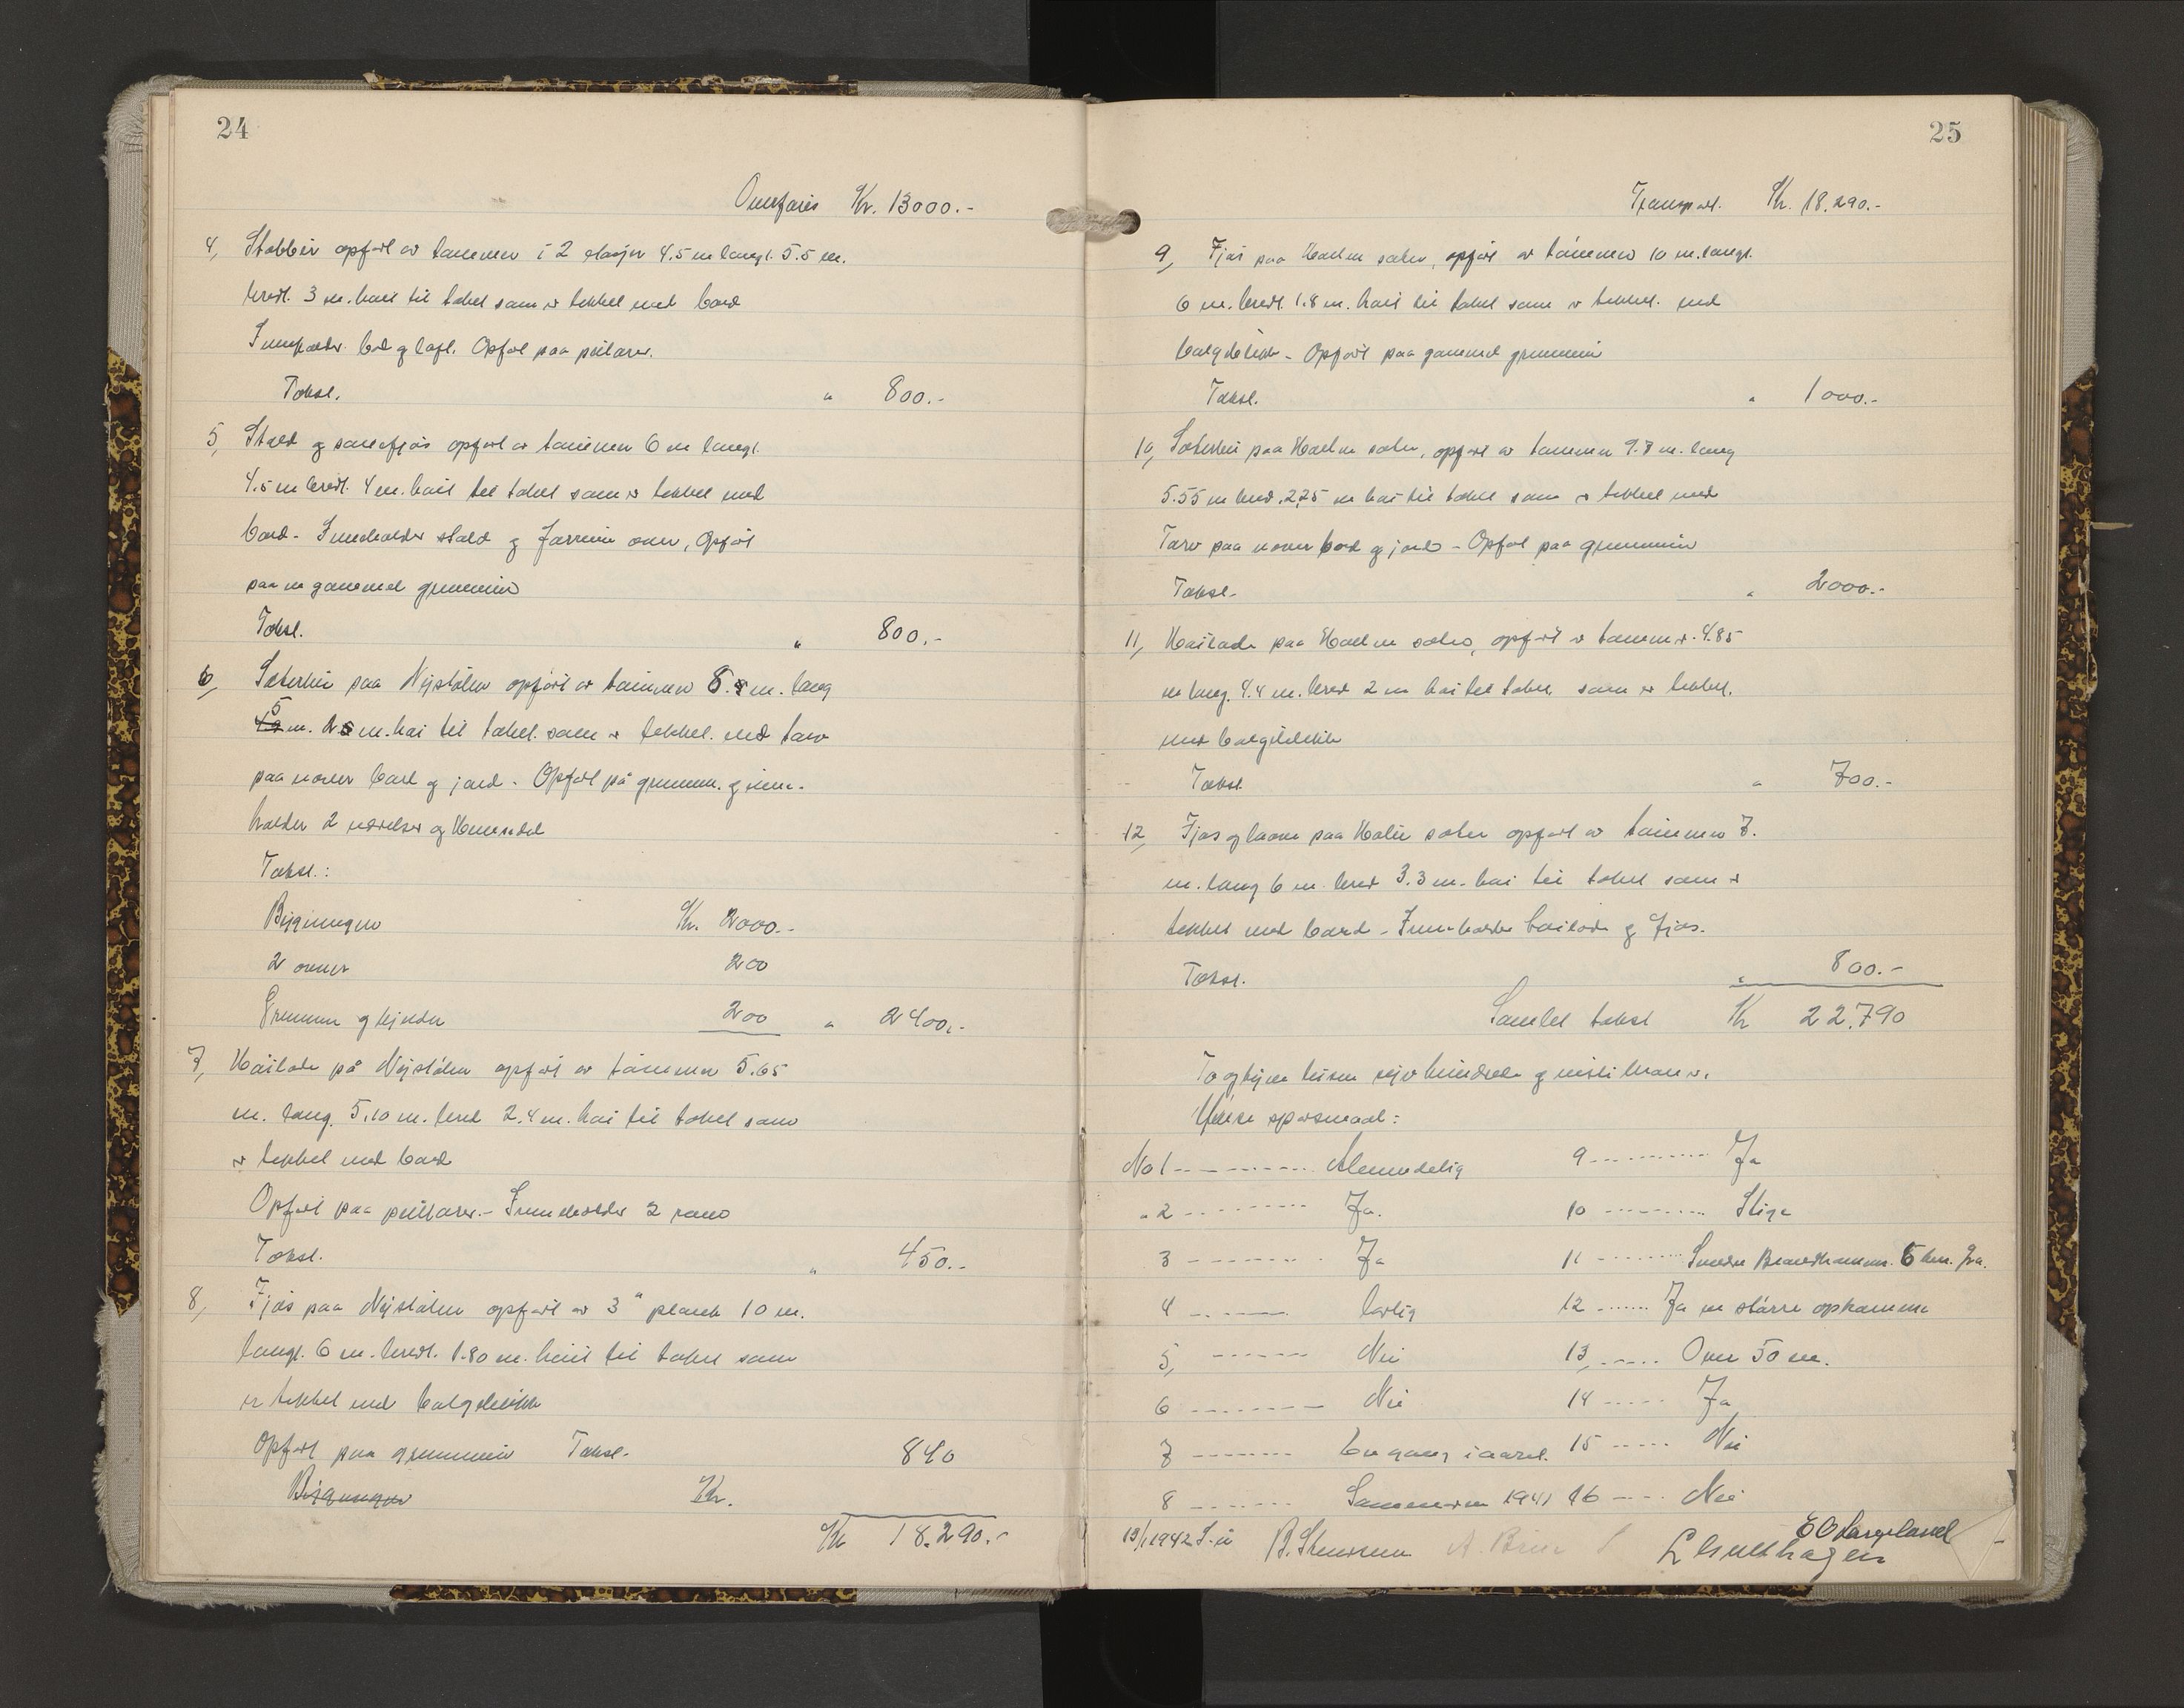 24
Overføres Kr. 13000.-
4, Stabbur opført av tømmer i 2 etasjer 4.5 m langt. 5.5 m.
bredt. 3 m. høit til taket som er tekket med bord
Inneholder bod og loft. Opført paa peilarer.
Takst. " 800.-
5, Stald og sauefjøs opført av tømmer 6 m langt.
4.5 m bredt. 4 m. høit til taket som er tekket med
bord - Inneholder stald og forrum over, Opført
paa en gammel grunnmur
Takst. " 800.-
6, Sæterhus paa Nystølen opført av tømmer 8. m. lang
5 m. 2.5 m. høi til taket. som er tekket. med tørv
paa never bord og jord - Opført på grunnm. og inne-
holder 2 værelser og
Takst.:
Bygningen Kr. 2000.-
2 ovner 200
Grunnmur og kjelder 200 " 2400.-
7, Høilade på Nystølen opført av tømmer 5.65
m. lang. 5.10 m. bred 2.4 m. høi til taket som
er tekket med bord
Opført paa peilarer. - Inneholder 2 rom
Takst. " 450.-
8, Fjøs paa Nystølen opført av 3" plank 10 m.
langt. 6 m. bredt. 1.80 m. høit til taket som
er tekket med bølgeblikk
Opført paa grunnmur Takst. 840
Bygningen Kr.
Kr 18.290.-
25
Transport. Kr. 18.290.-
9, Fjøs paa sæter, opført av tømmer 10 m. langt.
6 m. bredt. 1.8 m. høit til taket som er tekket. med
bølgeblikk - Opført paa gammel grunnmur
Takst. " 1000.-
10, Sæterhus paa sæter, opført av tømmer 9.7 m. lang
5.55 m bred. 2,25 m høi til taket som er tekket med
Tørv paa never bord og jord - Opført paa grunnmur
Takst. " 2000.-
11, Høilade paa sæter, opført av tømmer. 4.85
m lang. 4.4 m. bred 2 m høi til taket som er tekket.
med bølgeblikk
Takst. " 700.-
12, Fjøs og laave paa sæter opført av tømmer 7.
m. lang 6 m. bred 3.3 m. høi til taket som er
tekket med bord - Inneholder høilade og fjøs.
Takst. " 800.-
Samlet takst Kr 22.790
To og tyve tusen syv hundrede og nitti kroner.
spørsmaal:
No 1 ---- Almindelig 9 ---- Ja
" 2 ---- Ja. 10 ---- Stige
3 ---- Ja 11 ---- Søndre 6 km. fra.
4 ---- lovlig 12 ---- Ja en større opkomme
5, ---- Nei 13, ---- Over 50 m.
6 ---- Nei 14 ---- Ja
7 ---- En gang i aaret. 15 ---- Nei
8 ---- Sommeren 1941 16 ---- Nei